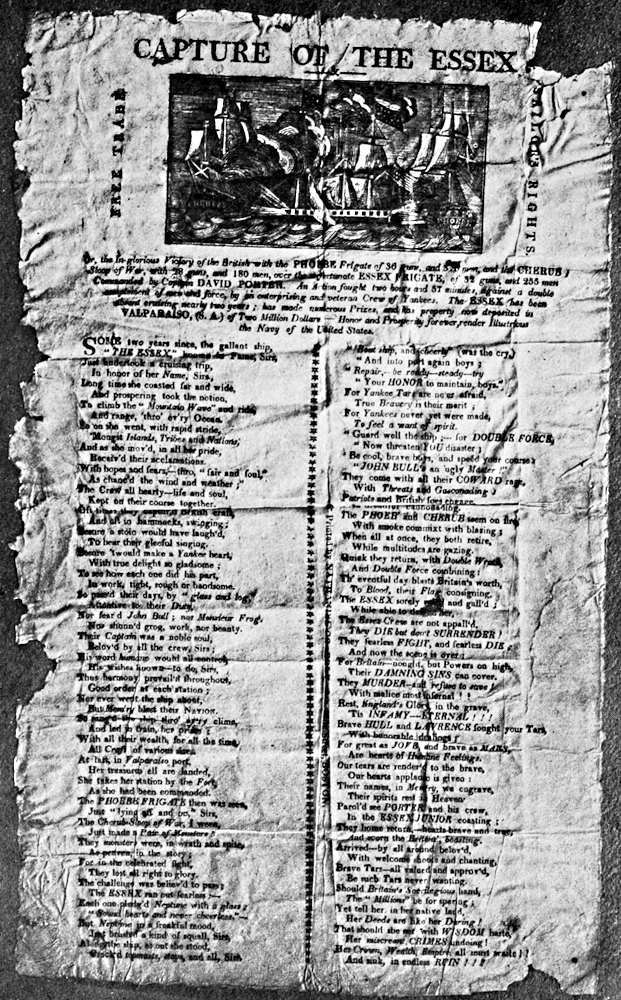 CAPTURE OF THE ESSEX
FREE TRADE
SAILOR'S RIGHTS
Or, the In-glorious Victory of the British with the PHOEBE Frigate of 36 guns, and men, and the CHERUB
Sloop of War, with 28 guns, and 180 men, over the unfortunate ESSEX FRIGATE, of 32 guns, and 255 men
Commanded by Captain DAVID PORTER. An Action fought two hours and 57 minutes, against a double
of men and force, by an enterprising and veteran Crew of Yankees. The ESSEX has been
cruising nearly two years; has made numerous Prizes, and has property now deposited in
VALPARAISO, (S. A.) of Two Million Dollars — Honor and Prosperity forever, render Illustrious
the Navy of the United States.
SOME two years since, the gallant ship,
"THE ESSEX" known to Fame, Sirs,
Just undertook a cruising trip,
In honor of her Name, Sirs,
Long time she coasted far and wide,
And prospering took the notion,
To climb the "Mountain Wave" and ride,
And range, 'thro' ev'ry Ocean.
So on she went, with rapid stride,
'Mongst Islands, Tribes and Nations;
And as she mov'd, in all her pride,
Receiv'd their acclamations.
With hopes and fears,—thro, "fair and foul,"
As chanc'd the wind and weather;
The Crew all hearty—life and soul,
Kept on their course together.
Oft times they
And oft to hammocks, swinging;
a stoic would have laugh'd,
To hear their gleeful singing.
'twould make a Yankee heart,
With true delight so gladsome;
To see how each one did his part,
In work, tight, rough or handsome.
So passed their days, by "glass and log,"
Attentive to their Duty,
Nor fear'd John Bull; nor Monsieur Frog,
Nor shunn'd grog, work, nor beauty.
Their Captain was a noble soul,
Belov'd by all the crew, Sirs;
His word would all control,
His wishes known—to do, Sirs,
Thus harmony prevail'd throughout,
Good order at each station;
Nor ever went the ship about,
But Mem'ry bless their NATION.
the ship thro' ev'ry clime,
And led in train, her prizes;
With all their wealth, for all the time,
All Cogs of various sizes.
At last, in Valparaiso port,
Her treasures all are landed,
She takes her station by the Fort,
As she had been commanded.
The PHOEBE FRIGATE then was seen,
Just "lying off and on," Sirs,
The Cherub Sloop of War, I ween,
Just made a Pair of Monsters!
They monsters were, in wrath and spite,
As proven, in the story;
For in the celebrated fight,
They lost all right to glory.
The challenge was believ'd to pass;
The ESSEX ran out fearless;—
Each one pledg'd Neptune with a glass;
"Sound hearts and never cheerless."—
But Neptune in a freakful mood,
Just brushed a kind of squall, Sirs,
Along the ship, as out she stood,
Crack'd topmasts, stays, and all, Sirs.
"Bout ship, and cheerly" (was the cry,)
"And into port again boys;
"Repair,—be ready—steady—try
"Your HONOR to maintain, boys."
For Yankee Tars are ne'er afraid,
True Bravery is their merit;
For Yankees never yet were made,
To feel a want of spirit.
"Guard well the ship;— for DOUBLE FORCE,
"Now threaten YOU disaster;
"Be cool, brave boys, and speed your course;
"JOHN BULL'S an ugly Master!"
They come with all their COWARD rage,
With Threats and Gasconading;
Patriots and British foes engage,
In dreadful cannonading.
The PHOEBE and CHERUB seem on fire,
With smoke commixt with blazing;
When all at once, they both retire,
While multitudes are gazing.
Quick they return, with Double Wrath,
And Double Force combining;
Th' eventful day blasts Britain's worth,
To Blood, their Flag consigning.
The ESSEX sorely and gall'd;
While able to defend her,
The Essex Crew are not appall'd.
They DIE but don't SURRENDER!
They fearless FIGHT, and fearless DIE,
And now the scene is over;
For Britain—nought, but Powers on high,
Their DAMNING SINS can cover.
They MURDER—and refuse to save!
With malice most infernal!!
Rest, England's Glory in the grave,
'Tis INFAMY—ETERNAL!!!
Brave HULL and LAWRENCE fought your Tars,
With honorable dealings;
For great as JOVE and brave as MARS,
Are hearts of Humane Feelings.
Our tears are render'd to the brave,
Our hearts applause is given:
Their names, in Mem'ry, we engrave,
Their spirits rest in Heaven
Parol'd see PORTER and his crew,
In the ESSEX JUNIOR coasting;
They home return,—hearts brave and true,
And scorn the Britons' boasting.
Arrived—by all around belov'd,
With welcome shouts and chanting,
Brave Tars—all valor'd and approv'd,
Be such Tars never wanting.
Should Britain's Sacrilegious hand,
The "Millions" be for sparing;
Yet tell her, in her native land,
Her Deeds are like her Daring!
That should she err with WISDOM haste,
Her miscreant CRIMES undoing!
Her Crown, Wealth, Empire, all must waste!!
And sink, in endless RUIN!!!